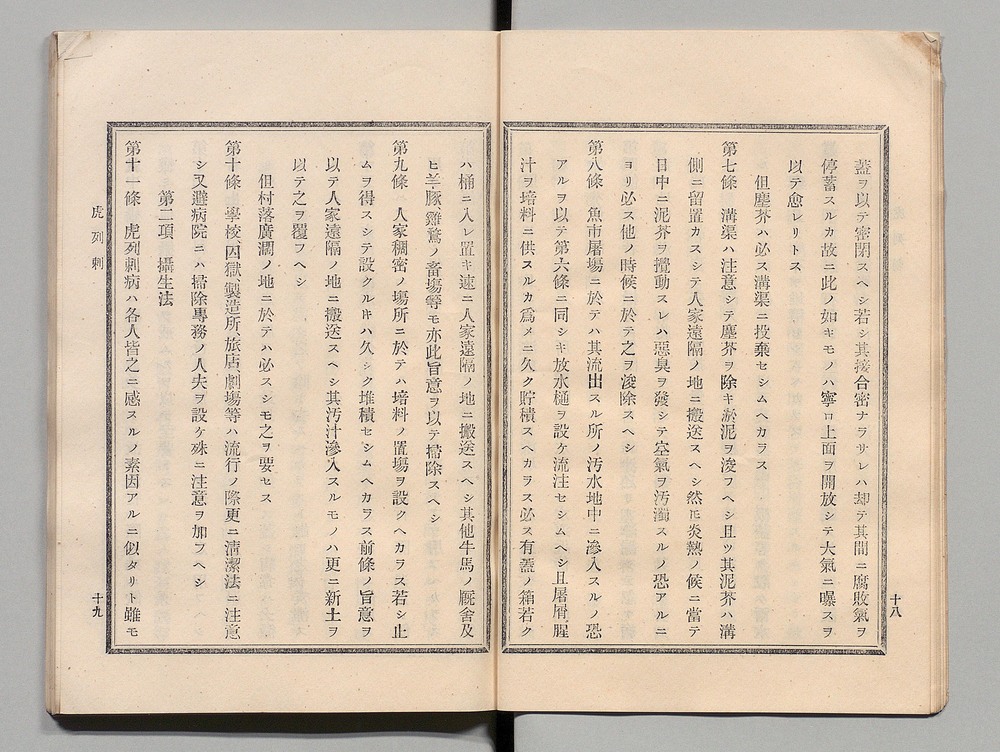 蓋ヲ以テ密閉スヘシ若シ其接合密ナラサレハ却テ其間ニ腐敗氣ヲ
停蓄スルカ故ニ此ノ如キモノハ寧ロ上面ヲ開放シテ大氣ニ曝スヲ
以テ愈レリトス
但塵芥ハ必ス溝渠ニ投棄セシムヘカラス
第七條 溝渠ハ注意シテ塵芥ヲ除キ淤泥ヲ浚フヘシ且ツ其泥芥ハ溝
側ニ留置カスシテ人家遠隔ノ地ニ搬送スヘシ然モ炎熱ノ候ニ當テ
日中ニ泥芥ヲ攪動スレハ惡臭ヲ發シテ空氣ヲ汚濁スルノ恐アルニ
ヨリ必ス他ノ時候ニ於テ之ヲ浚除スヘシ
第八條 魚市屠場ニ於テハ其流出スル所ノ汚水地中ニ滲入スルノ恐
アルヲ以テ第六條ニ同シキ放水樋ヲ設ケ流注セシムヘシ且屠屑腥
汁ヲ培料ニ供スルカ爲メニ久ク貯積スヘカラス必ス有蓋ノ箱若ク
十八
ハ桶ニ入レ置キ速ニ人家遠隔ノ地ニ搬送スヘシ其他牛馬ノ厩舎及
ヒ羊豚雞鶩ノ畜塲等モ亦此旨意ヲ以テ掃除スヘシ
第九條 人家稠密ノ塲所ニ於テハ培料ノ置塲ヲ設クヘカラス若シ止
ムヲ得スシテ設クルキハ久シク堆積セシムヘカラス前條ノ旨意ヲ
以テ人家遠隔ノ地ニ搬送スヘシ其汚汁滲入スルモノハ更ニ新土ヲ
以テ之ヲ覆フヘシ
但村落廣濶ノ地ニ於テハ必スシモ之ヲ要セス
第十條 學校、囚獄、製造所、旅店、劇塲等ハ流行ノ際更ニ淸潔法ニ注意
シ又避病院ニハ掃除專務ノ人夫ヲ設ケ殊ニ注意ヲ加フヘシ
第二項 攝生法
第十一條 虎列剌病ハ各人皆之ニ感スルノ素因アルニ似タリト雖モ
虎列剌
十九